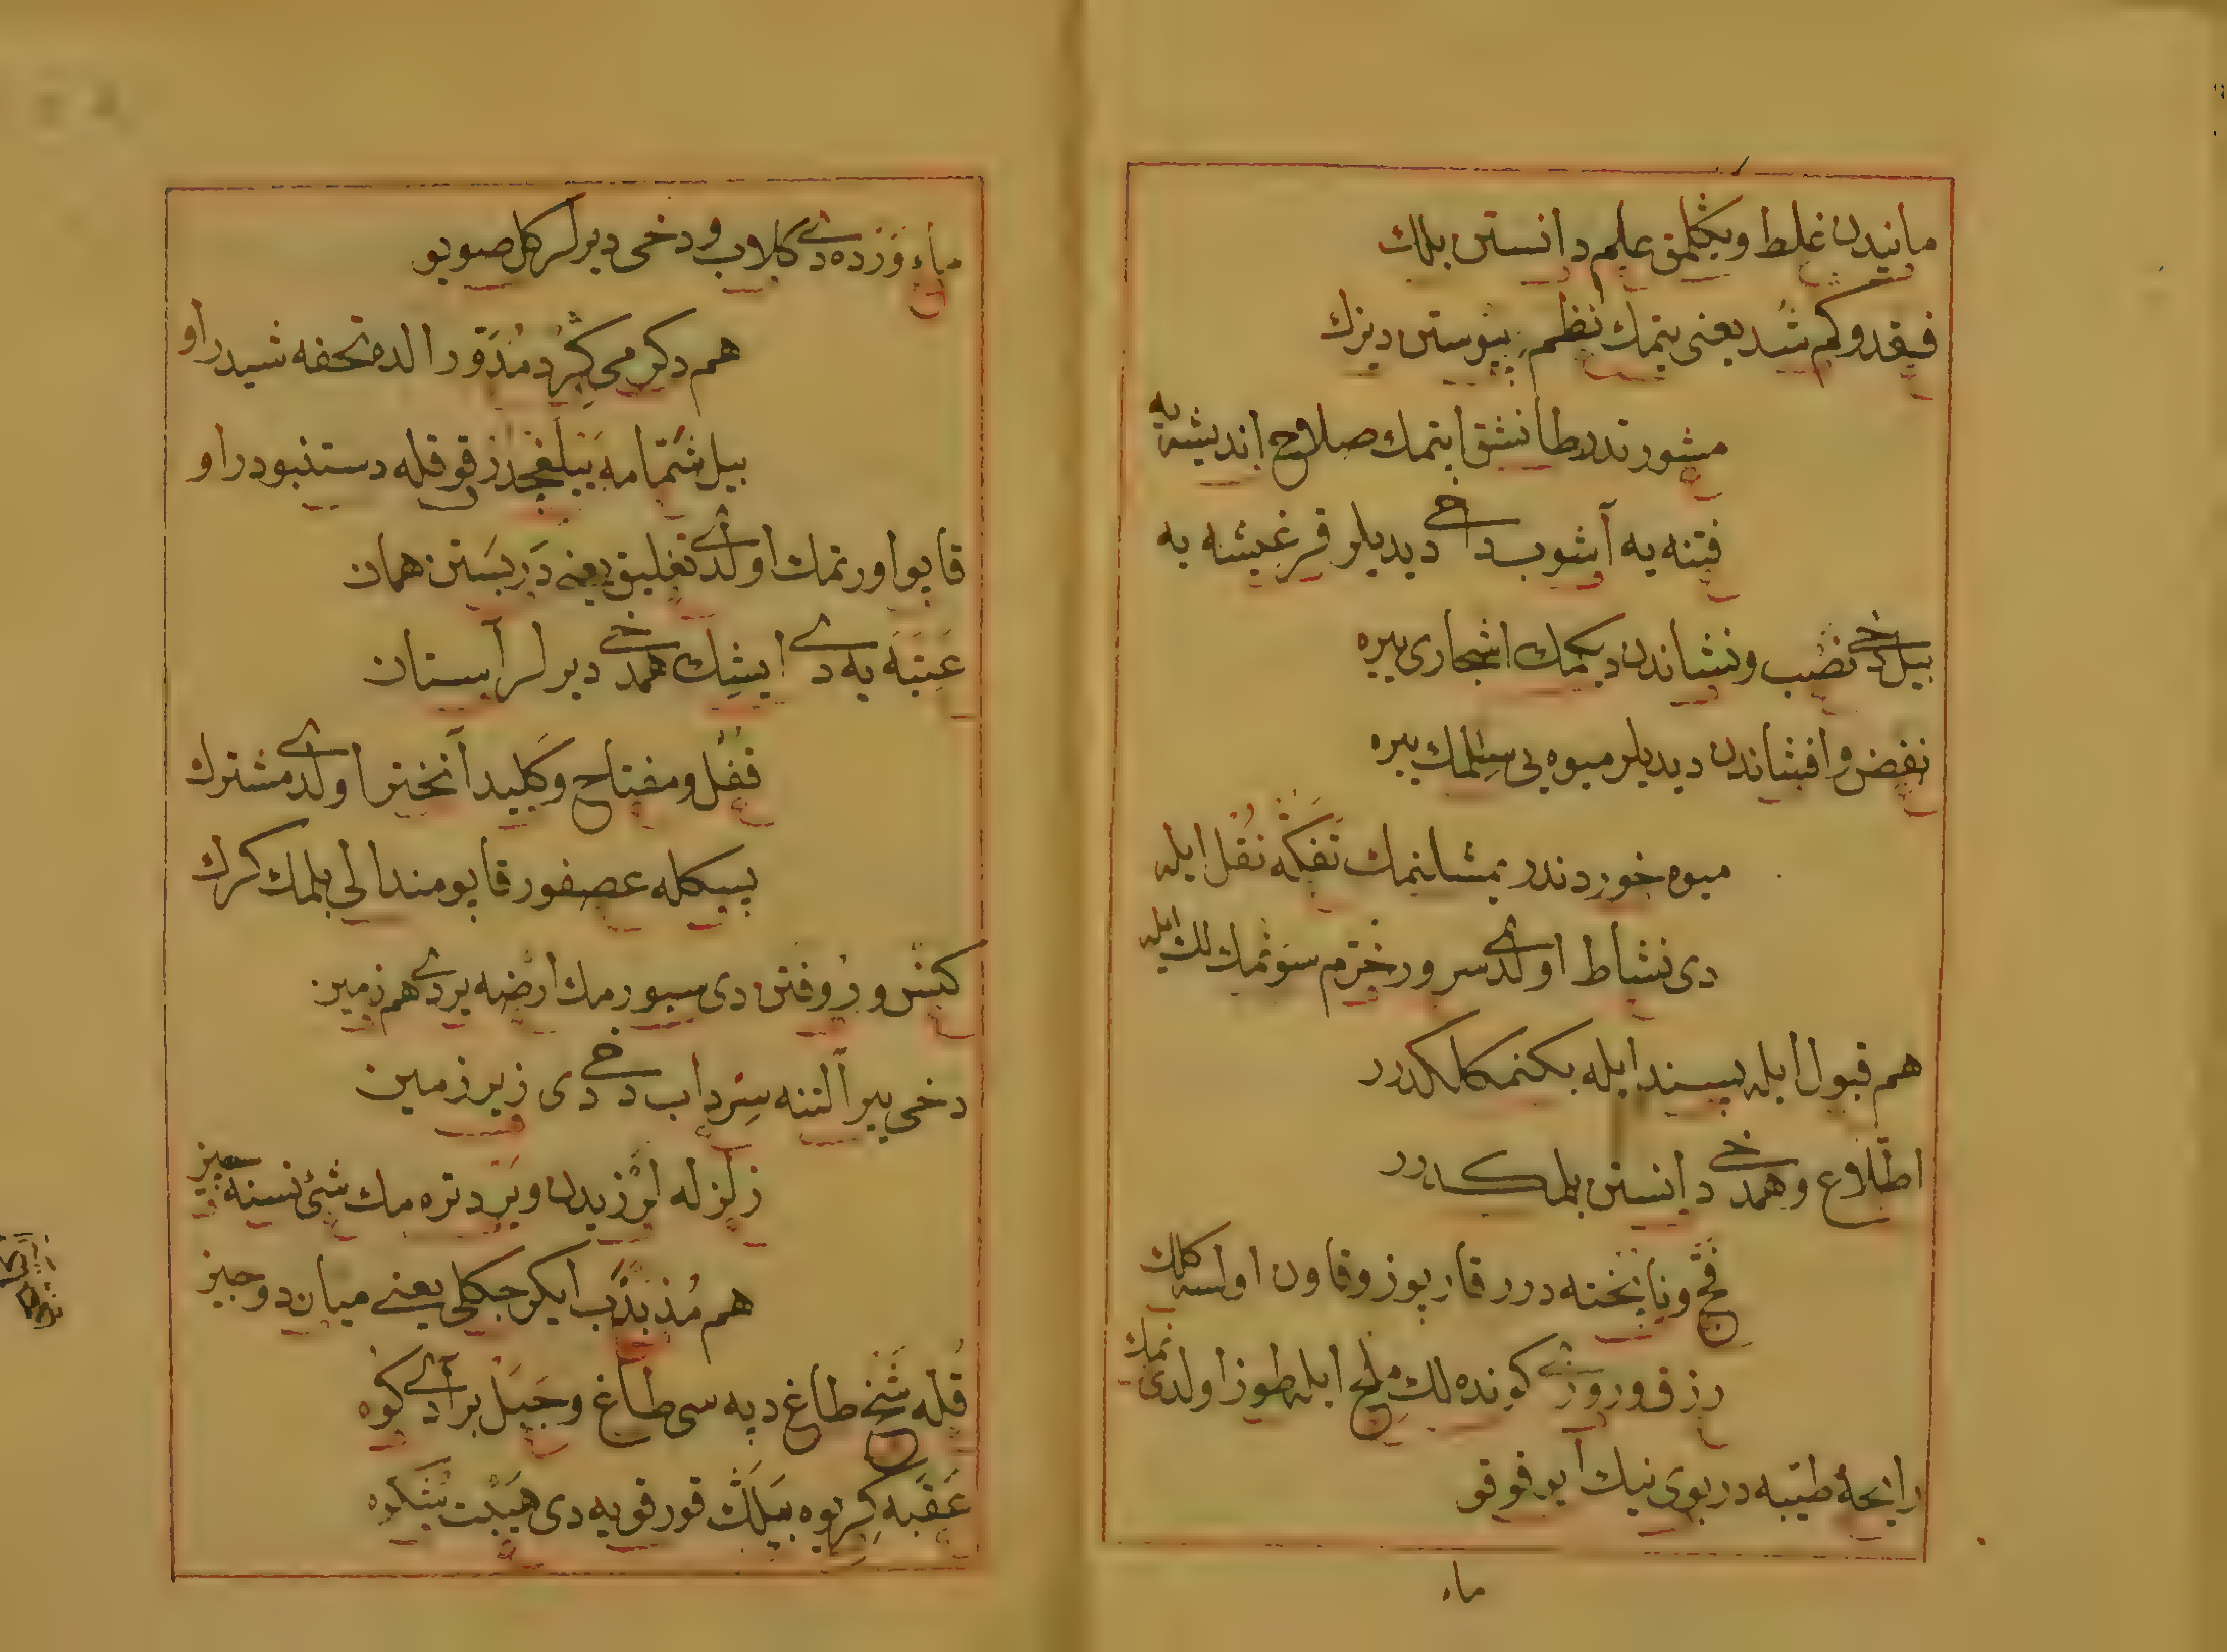 مانیدن غلط ویکلمق علم دانستن بلمك
فقد وکم شد یعنی یتمك نظم پیوستن دیزك
مشورتدر طانشق ایتمك صلاح اندیشه یه
فتنه یه آشوب دخی دیدیلر قرغیشه یه
بیل دخی نصب و نشاندن دیکمك اشجاری یره
نفض و افشاندن دیدیلر میوه یی سلکمك یره
میوه خوردندر یمشلنمك تفکه نقل ایله
دی نشاط اولدی سرور خرم سوئمك لك ایله
هم قبول ایله پسند ایله بکنمکلکدرر
اطلاع و همدخی دانستن بلمکدرر
فج و ناپخته درر قارپوز و قاون اولسه کلك
رزق و روزی کونده لك ملح ایله طوز اولدی نمك
رایحهٔ طیبه در بوی نیك ایو قوقو
ماء
ماء وردہ دی کلاب و دخی دیرلر کل صویو
هم دکرمی کرد مدور الده تحفه شیدراو
بیل شمامه قوقله دستنبودراو
قاپو اورتمك اولدی تغلیق یعنی در بستن همان
عتبه یه دی ایشك همدخی دیرلر آستان
قفل و مفتاح و کلید آنختر اولدی مشترك
پسکله عصفور قاپو مندالی بلمك کرك
کنس و روفتن دی سپورمك ارضه یر دی هم زمین
دخی یر آلتنه سرداب دخی دی زیر زمین
زلزله لرزیدن و یر دتره مك شئ نسنه چیز
هم مذبذب ایکی جکلی یعنی میان دو چیز
قله شخ طاغ دپه سی طاغ و جبل بر آدی کوه
عقبه کریوه بیلك قورقویه دی هیبت شکوه